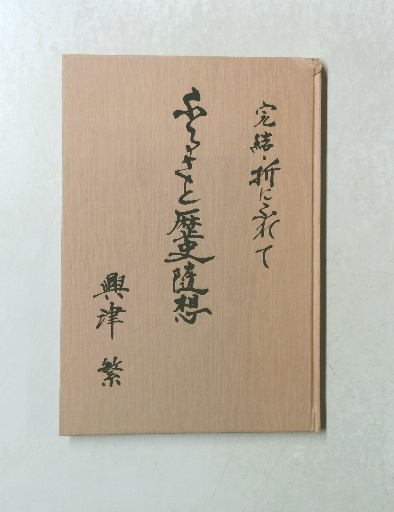 完結・折にふれて
ふるさと歴史随想
興津 繁